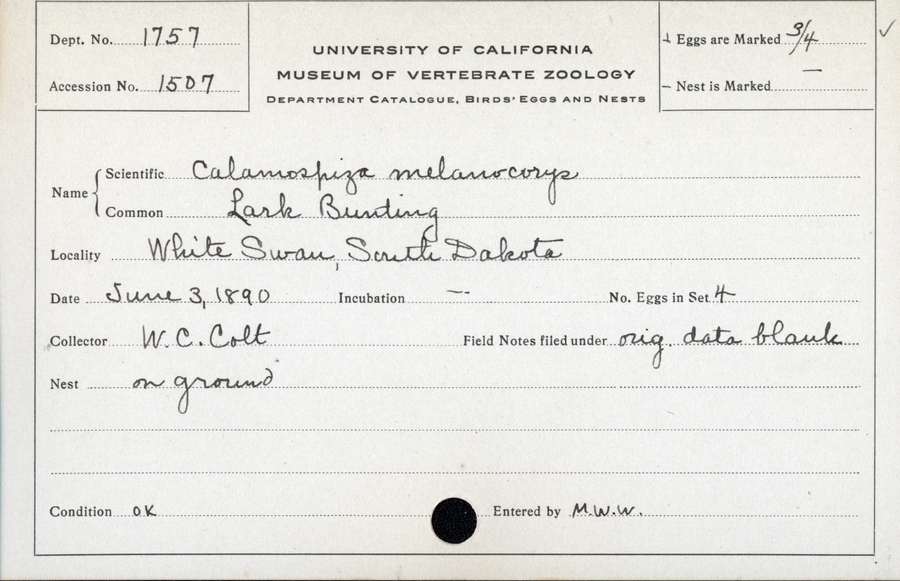 Dept. No. 1757
Accession No. 1507
UNIVERSITY OF CALIFORNIA
MUSEUM OF VERTEBRATE ZOOLOGY
DEPARTMENT CATALOGUE, BIRDS' EGGS AND NESTS
+ Eggs are Marked 3/4 ✓
– Nest is Marked —
Name { Scientific Calamospiza melanocorys
Common Lark Bunting
Locality White Swan, South Dakota
Date June 3, 1890 Incubation — No. Eggs in Set 4
Collector W. C. Colt Field Notes filed under orig. data blank
Nest on ground
Condition OK Entered by M.W.W.